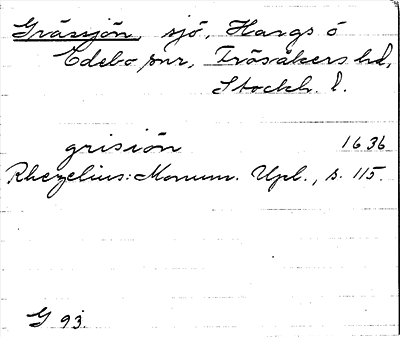 Gräsjön, sjö, Hargs o
Edebo snr, Frösåkers hd,
Stockh. l.
grisiön 1636
Rhezelius: Monum. Upl., s. 115.
G 93.